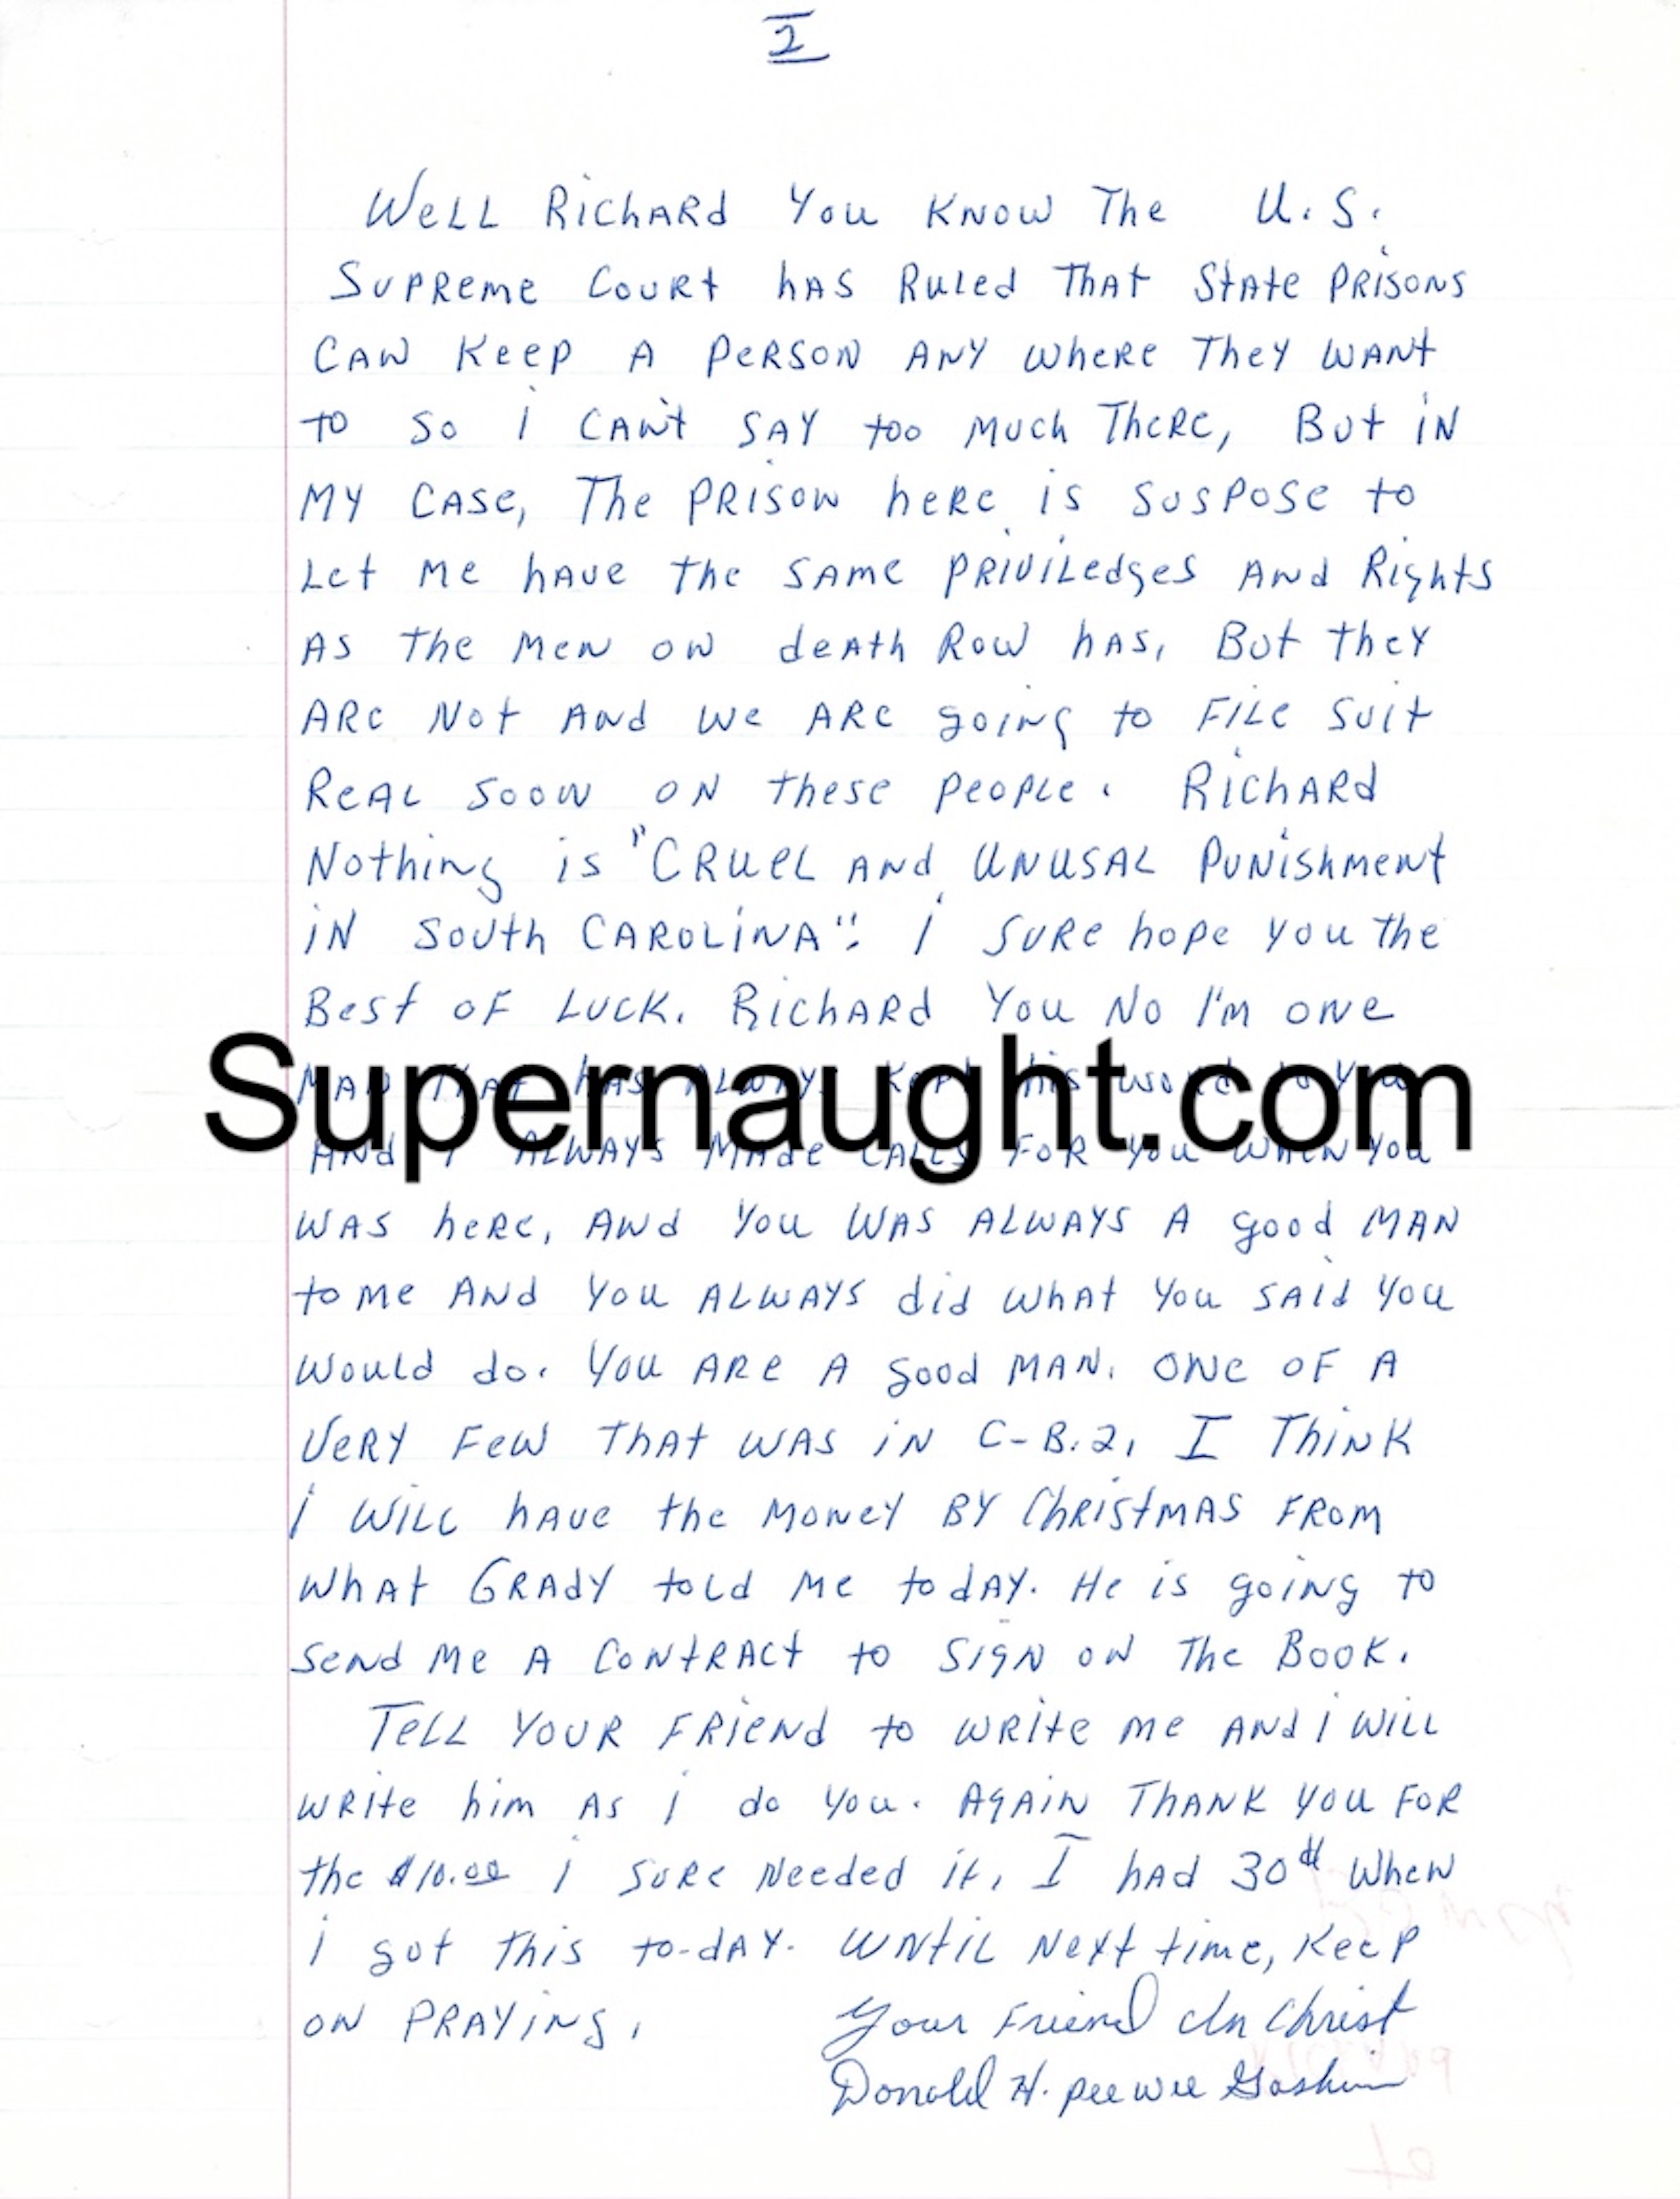 2
Well Richard You Know The U.S.
Supreme Court has Ruled That State Prisons
Can Keep A Person Any where They want
to so i can't say too much There, But in
My case, The Prison here is suspose to
Let me have the same Priviledges And Rights
As the Men on death Row has, But they
Are Not And we Are going to File suit
Real soon on these people. Richard
Nothing is "Cruel And Unusal Punishment
in South Carolina". I sure hope you the
Best of Luck. Richard You No I'm one
Man that has Always Kept his word to you
And I Always Made Calls For You when you
was here, And You was Always A good Man
to me And You Always did what You said You
would do. You Are A good Man. One of A
Very Few That was in C-B.2, I Think
i will have the Money By Christmas From
what Grady told me today. He is going to
send me A Contract to sign on The Book.
Tell Your Friend to write me And i will
write him As i do You. Again Thank You For
the $10.00 i sure Needed it, I had 30¢ when
i got this to-day. Until Next time, Keep
on Praying,
Your Friend In Christ
Donald H. pee wee Gaskins
Supernaught.com